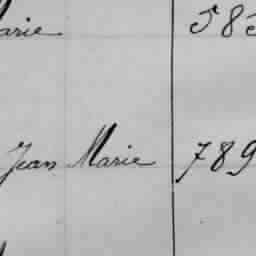 arie 583
Jean Marie 789